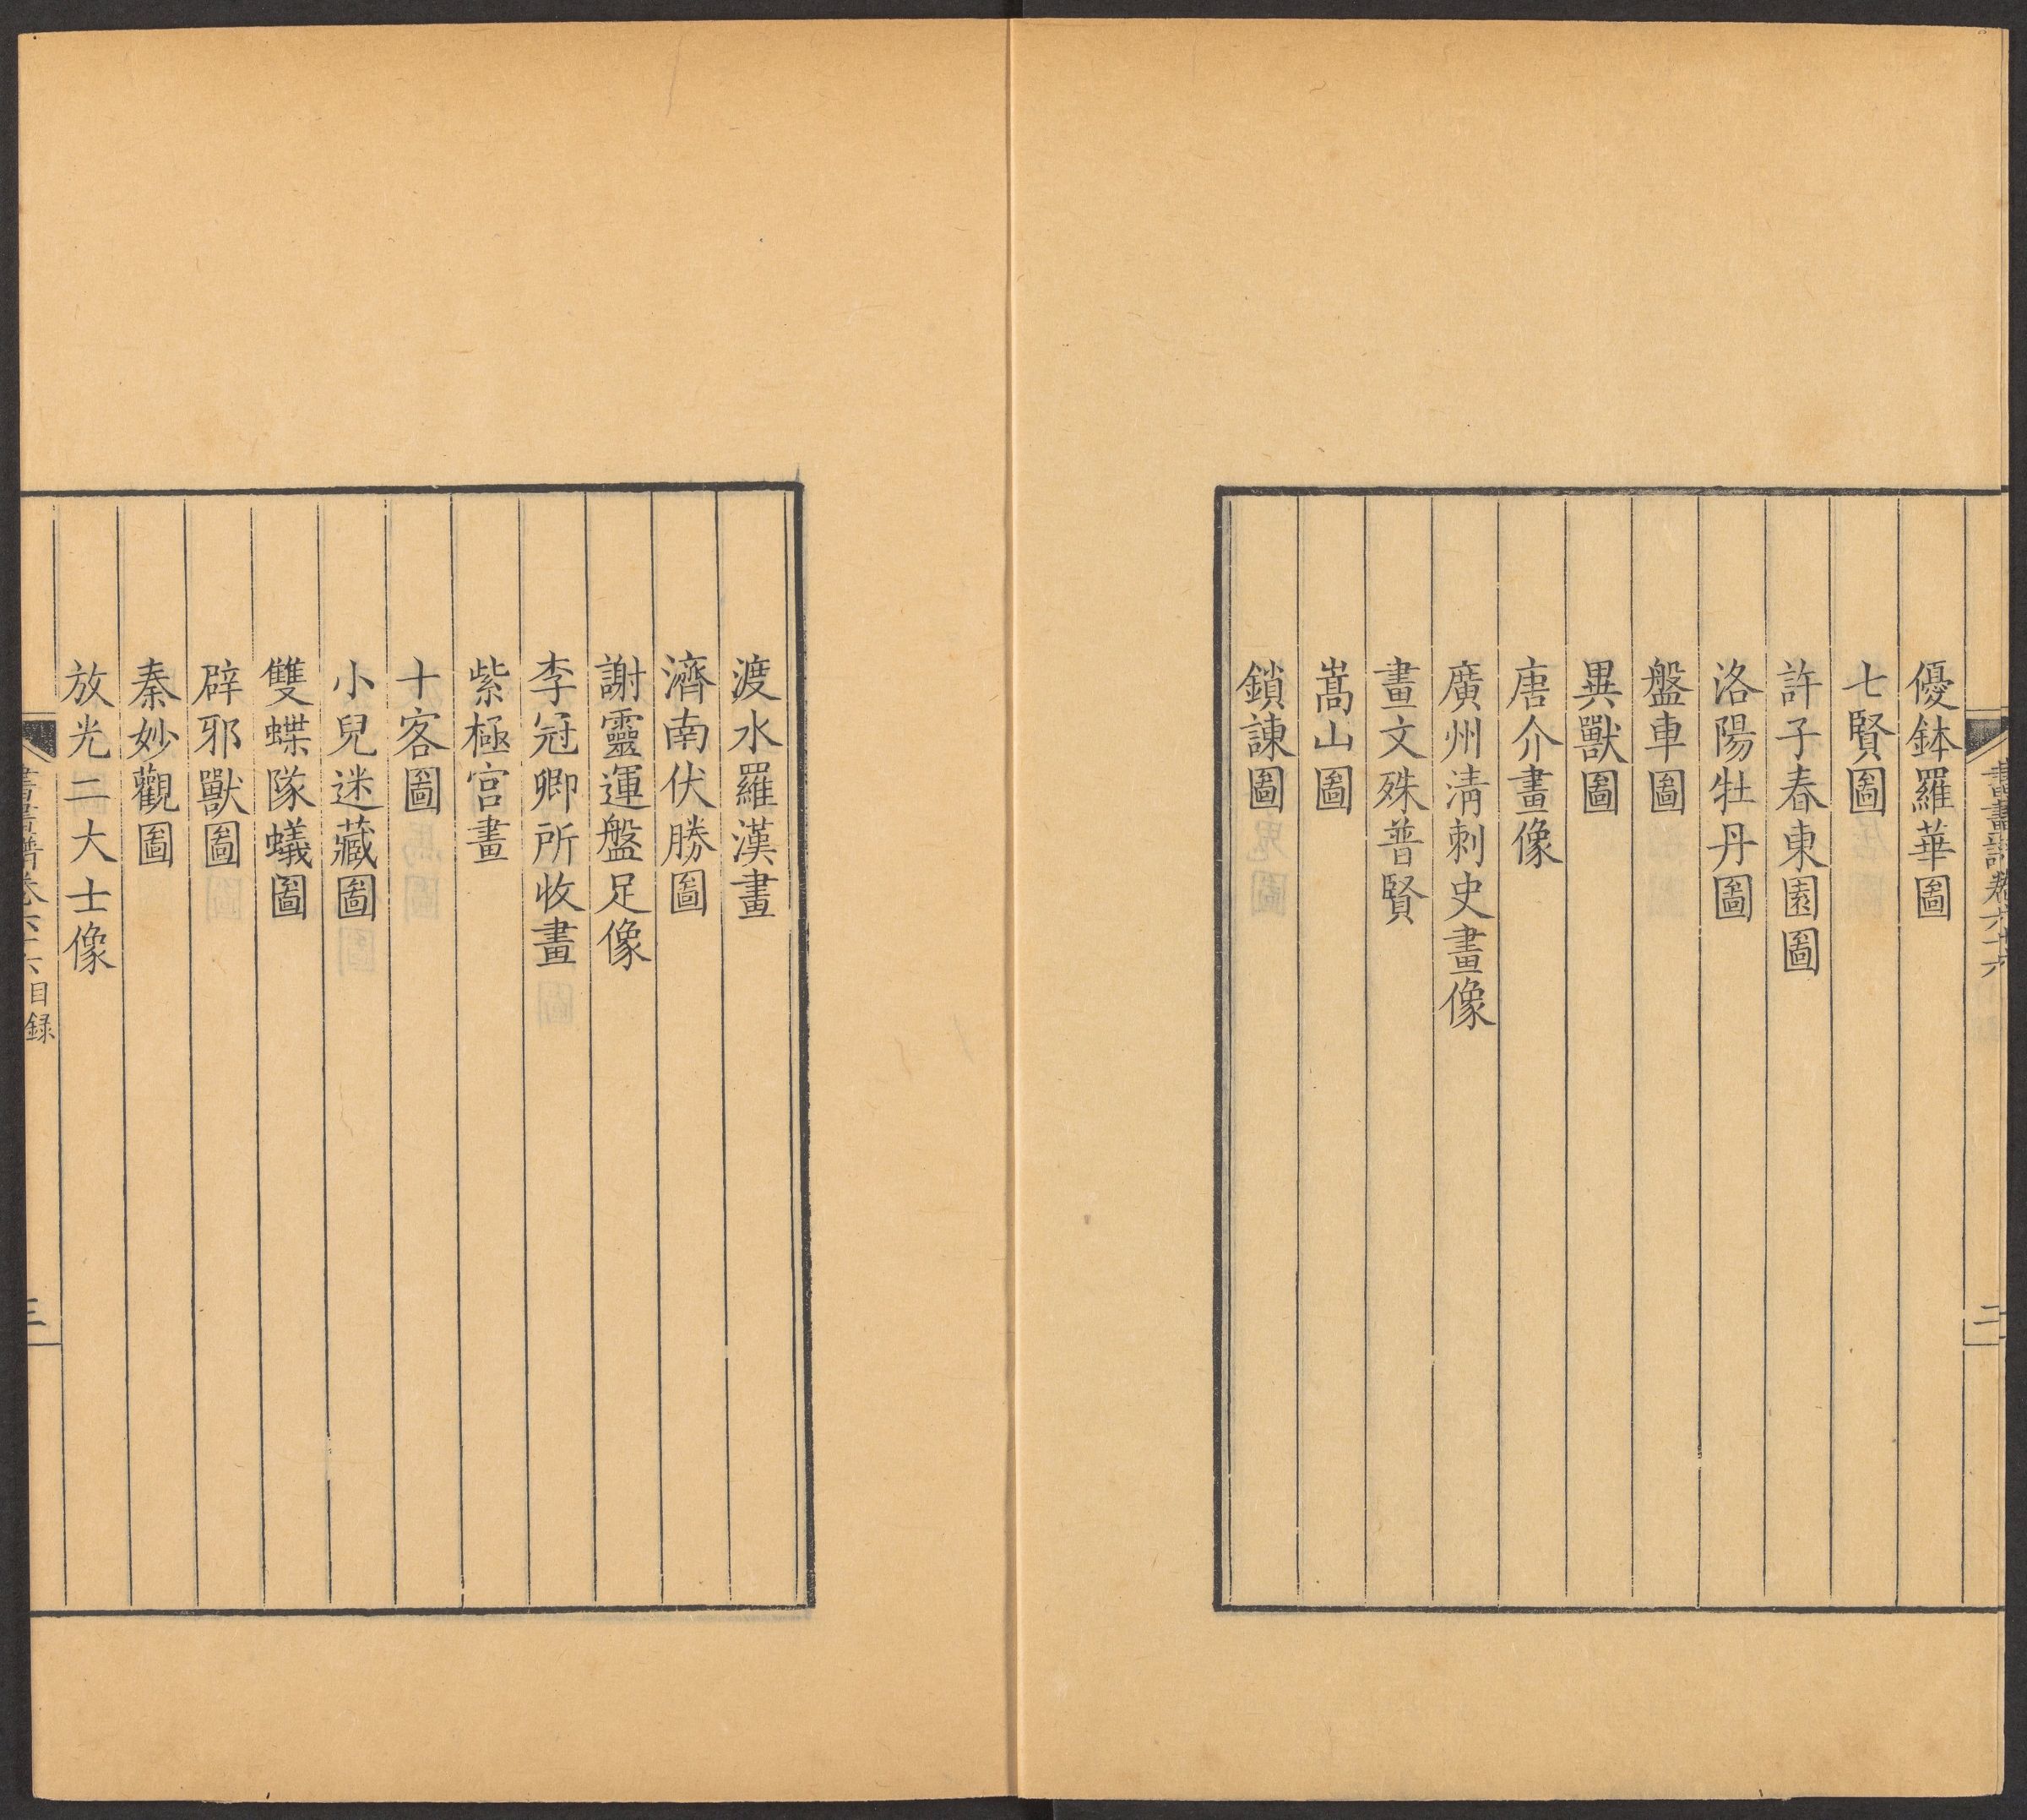 優鉢羅華圖
七賢圖
許子春東園圖
洛陽牡丹圖
盤車圖
異獸圖
唐介畫像
廣州淸刺史畫像
畫文殊普賢
嵩山圖
鎖諫圖
二
渡水羅漢畫
濟南伏勝圖
謝靈運盤足像
李冠卿所收畫
紫極宮畫
十客圖
小兒迷藏圖
雙蝶隊蟻圖
辟邪獸圖
秦妙觀圖
放光二大士像
書畫譜卷六十六目録
三